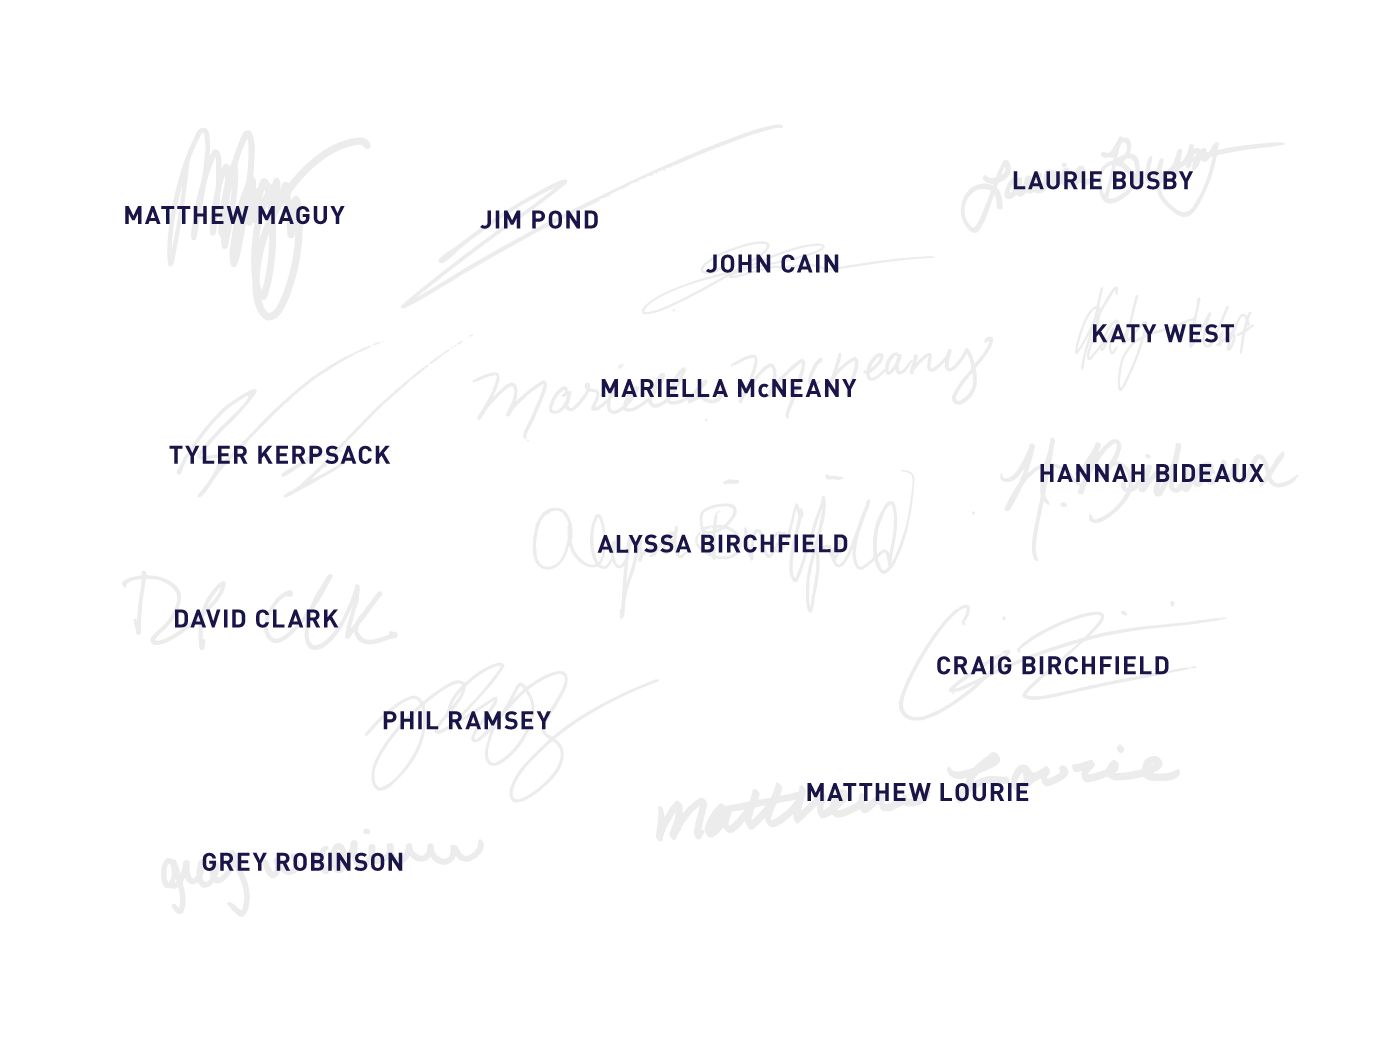 LAURIE BUSBY
MATTHEW MAGUY
JIM POND
JOHN CAIN
KATY WEST
MARIELLA McNEANY
TYLER KERPSACK
HANNAH BIDEAUX
ALYSSA BIRCHFIELD
DAVID CLARK
CRAIG BIRCHFIELD
PHIL RAMSEY
MATTHEW LOURIE
GREY ROBINSON